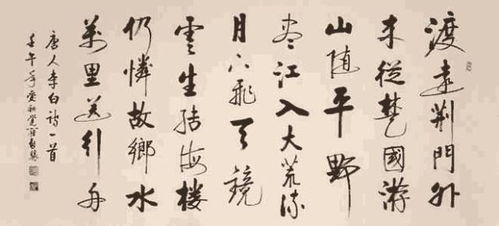 渡遠荆門外
来從楚國游
山随平野
尽江入大荒流
月下飛天鏡
雲生结海楼
仍憐故鄉水
萬里送行舟
唐人李白诗一首
壬午年爱新覺羅啓驤